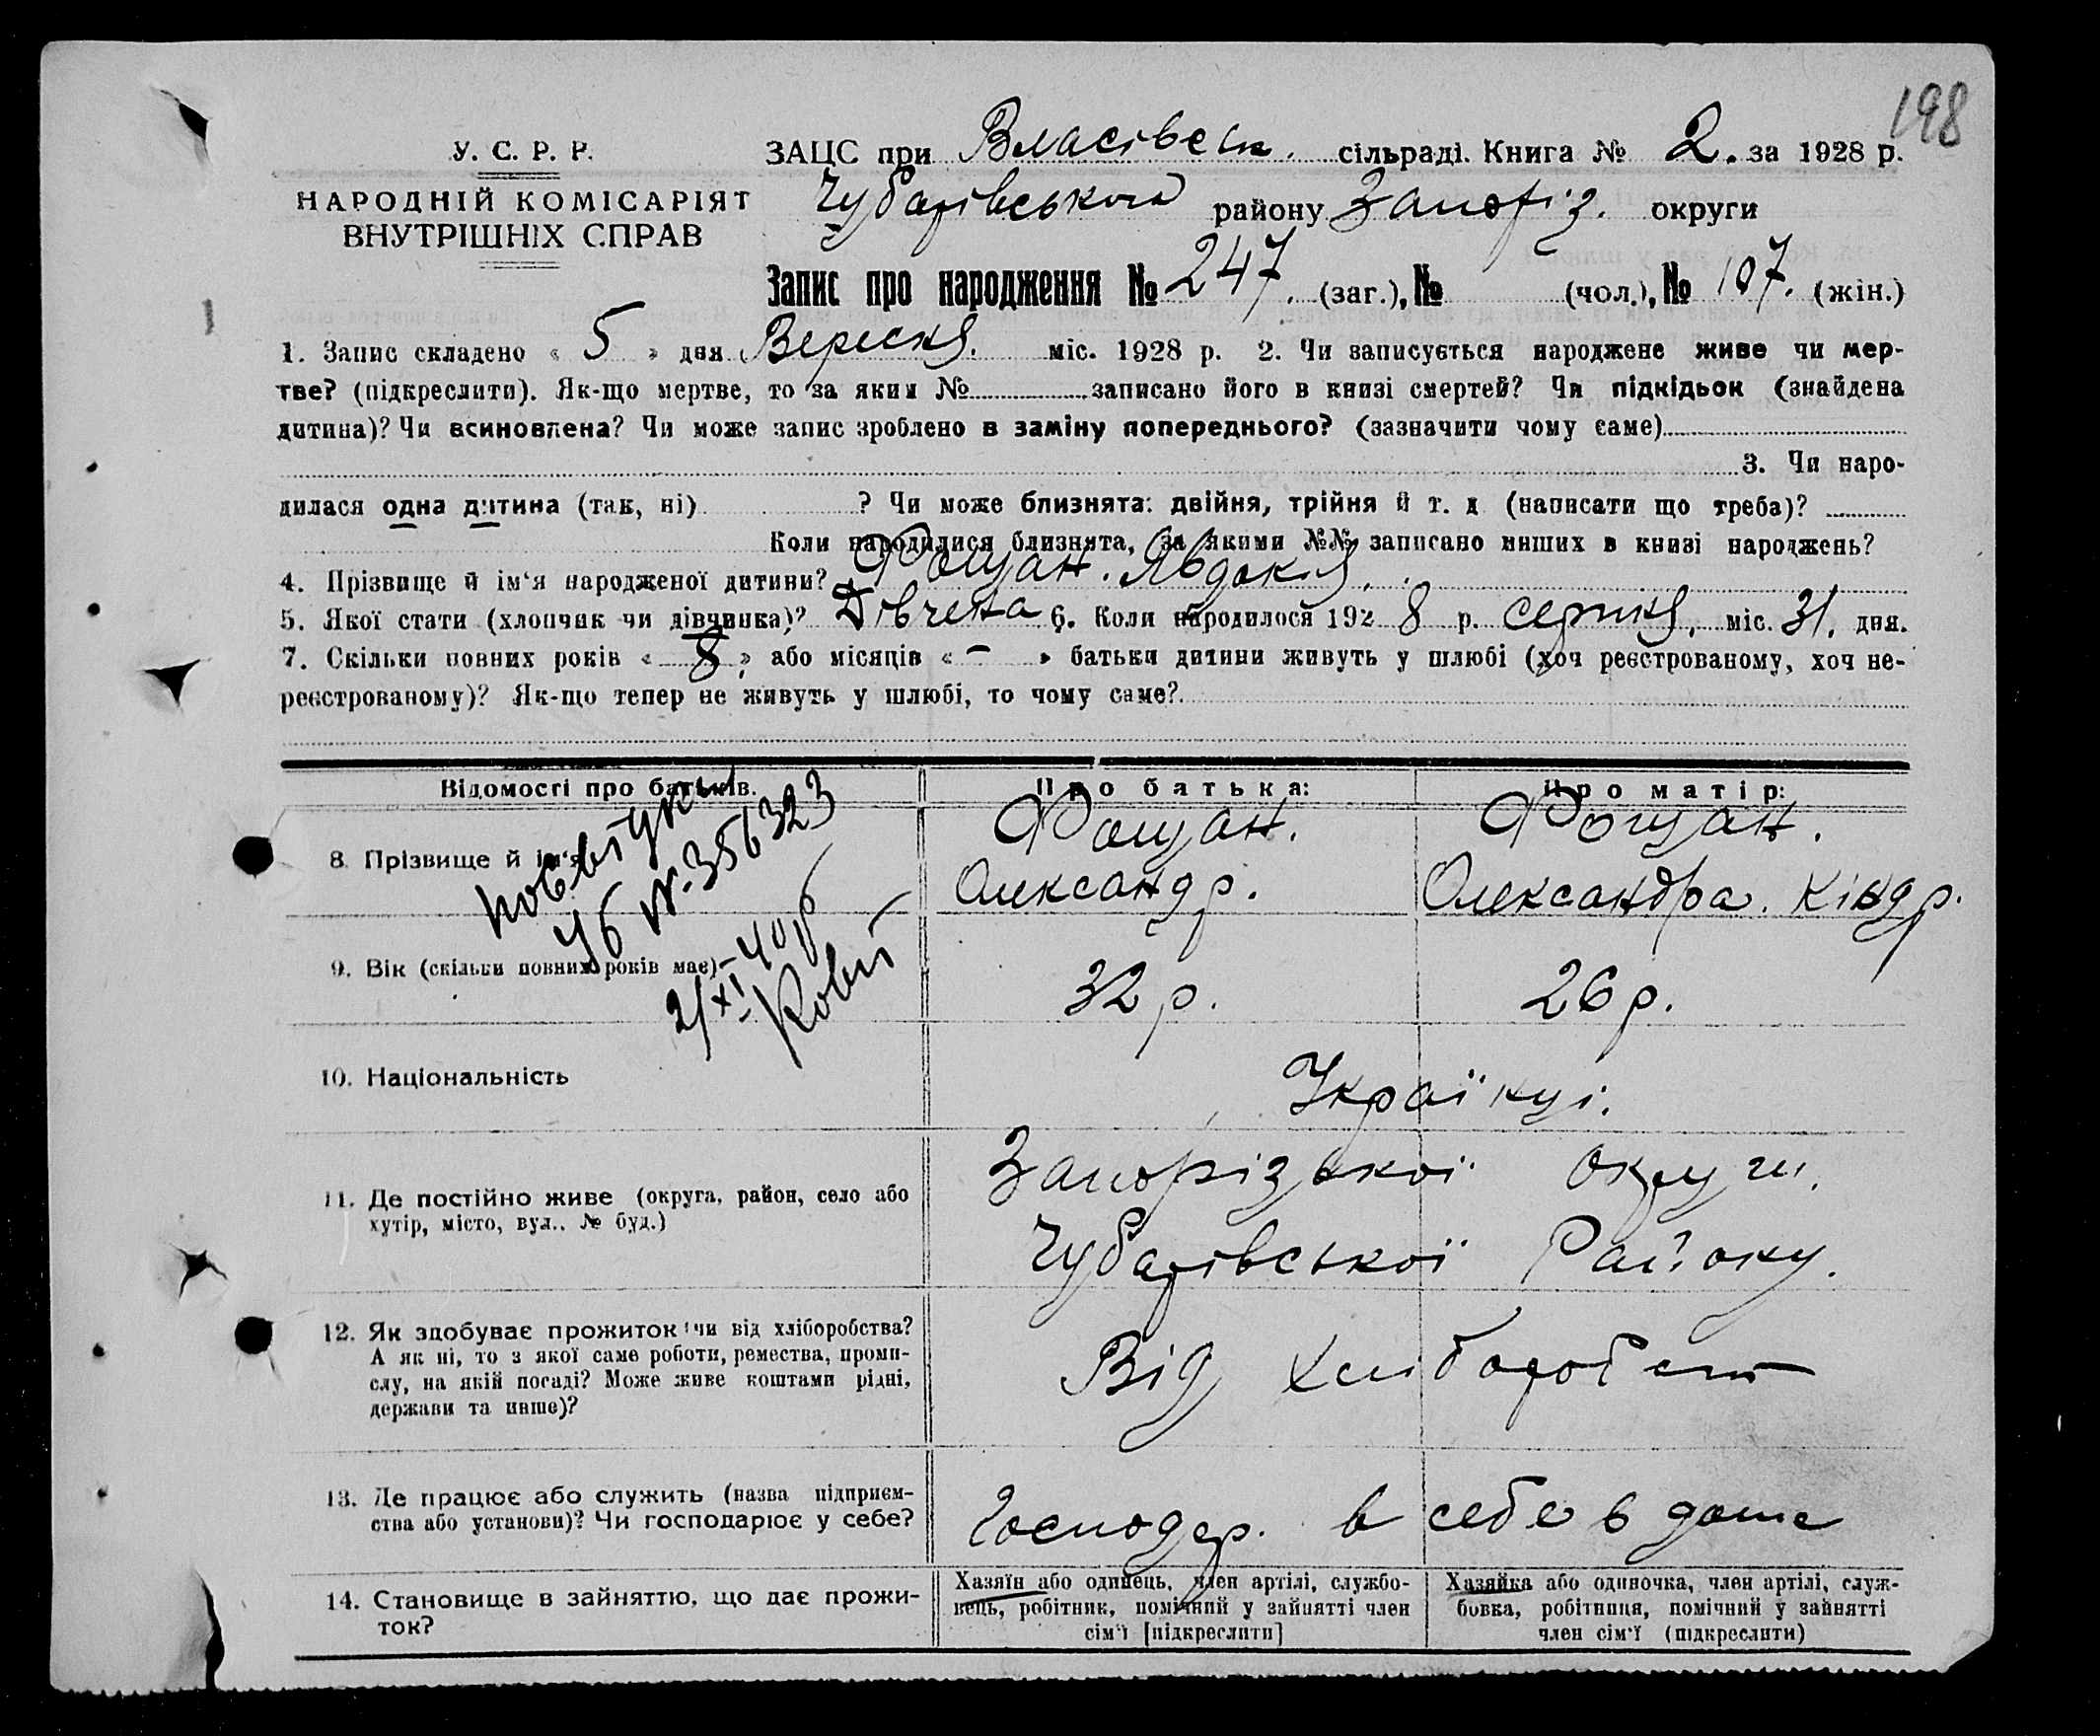 198
У. С. Р. Р.
НАРОДНІЙ КОМІСАРІЯТ
ВНУТРІШНІХ СПРАВ
ЗАЦС при Власівськ. сільраді. Книга № 2. за 1928 р.
Чубарівського району Запоріз. округи
Запис про народження № 247. (заг.), № (чол.), № 107. (жін.)
1. Запис складено « 5 » дня Вересня. міс. 1928 р. 2. Чи записується народжене живе чи мер-
тве? (підкреслити). Як-що мертве, то за яким № записано його в книзі смертей? Чи підкідьок (знайдена
дитина)? Чи всиновлена? Чи може запис зроблено в заміну попереднього? (зазначити чому саме)
3. Чи наро-
дилася одна дитина (так, ні) ? Чи може близнята: двійня, трійня й т. д (написати що треба)?
Коли народилися близнята, за якими №№ записано инших в книзі народжень?
4. Прізвище й ім'я народженої дитини? Фощан. Явдокія.
5. Якої стати (хлопчик чи дівчинка)? Дівчена 6. Коли народилося 1928 р. серпня, міс. 31. дня.
7. Скільки повних років « 8 » або місяців « – » батьки дитини живуть у шлюбі (хоч реєстрованому, хоч не-
реєстрованому)? Як-що тепер не живуть у шлюбі, то чому саме?
Відомості про батьків. Про батька: Про матір:
8. Прізвище й ім'я Фощан. Олександр. Фощан. Олександра. Кіндр.
№ 356323
21/XI-40р
9. Вік (скільки повних років має) 32 р. 26 р.
10. Національність Українці.
11. Де постійно живе (округа, район, село або
хутір, місто, вул., № буд.)
Запорізької округи.
Чубарівської Району.
12. Як здобуває прожиток: чи від хліборобства?
А як ні, то з якої саме роботи, ремества, проми-
слу, на якій посаді? Може живе коштами рідні,
держави та инше)?
Від хліборобст
13. Де працює або служить (назва підприєм-
ства або установи)? Чи господарює у себе?
Господар. в себе в доме
14. Становище в зайняттю, що дає прожи-
ток?
Хазяїн або одинець, член артілі, службо-
вець, робітник, помічний у зайнятті член
сім'ї [підкреслити]
Хазяйка або одиночка, член артілі, служ-
бовка, робітниця, помічний у зайнятті
член сім'ї (підкреслити)